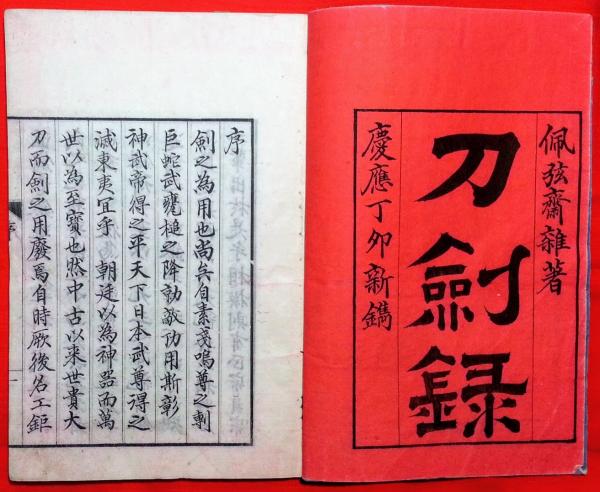 佩弦齋雜著
刀劍録
慶應丁卯新鐫
序
劍之為用也尚矣自素戔嗚尊之斬
巨蛇武甕槌之降勍敵功用斯彰
神武帝得之平天下日本武尊得之
滅東夷宜乎 朝廷以為神器而萬
世以為至寳也然中古以来世貴大
刀而劍之用廢焉自時厥後名工鉅